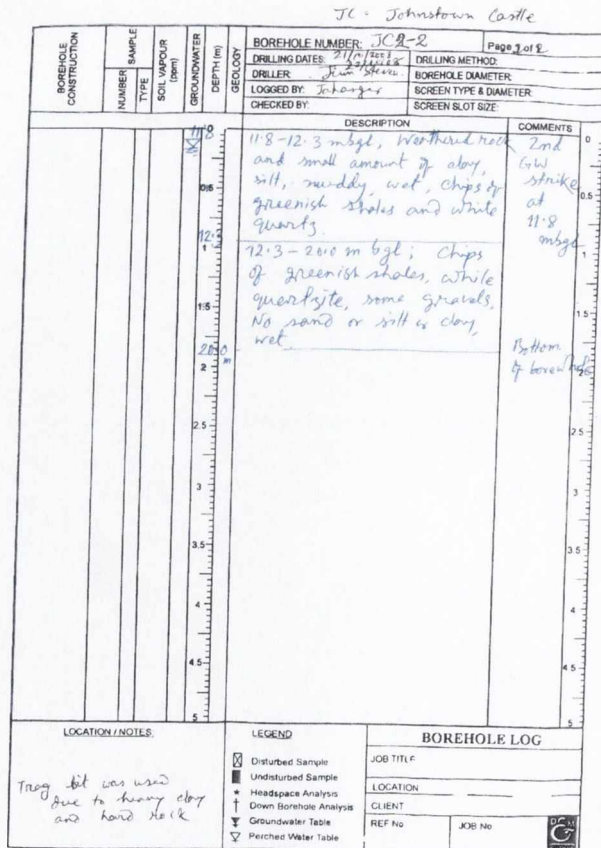 JC = Johnstown Castle
BOREHOLE CONSTRUCTION
SAMPLE
NUMBER
TYPE
SOIL VAPOUR (ppm)
GROUNDWATER
DEPTH (m)
GEOLOGY
BOREHOLE NUMBER: JC2-2
Page 2 of 2
DRILLING DATES:
DRILLING METHOD:
DRILLER: Jim
BOREHOLE DIAMETER:
LOGGED BY: Jahangir
SCREEN TYPE & DIAMETER:
CHECKED BY:
SCREEN SLOT SIZE:
DESCRIPTION
COMMENTS
11.8
11.8-12.3 mbgl, Weathered rock
and small amount of clay,
silt, muddy, wet, chips of
greenish shales and white
quartz.
2nd
GW
strike
at
11.8
mbgl
12.3
12.3-20.0 m bgl; chips
of greenish shales, white
quartzite, some gravels,
No sand or silt or clay,
wet
20.0
m
Bottom
of borehole
0
0.5
1
1.5
2
2.5
3
3.5
4
4.5
5
0
0.5
1
1.5
2
2.5
3
3.5
4
4.5
5
LOCATION / NOTES:
bit was used
due to heavy clay
and hard rock
LEGEND
Disturbed Sample
Undisturbed Sample
* Headspace Analysis
† Down Borehole Analysis
Groundwater Table
Perched Water Table
BOREHOLE LOG
JOB TITLE
LOCATION
CLIENT
REF No
JOB No